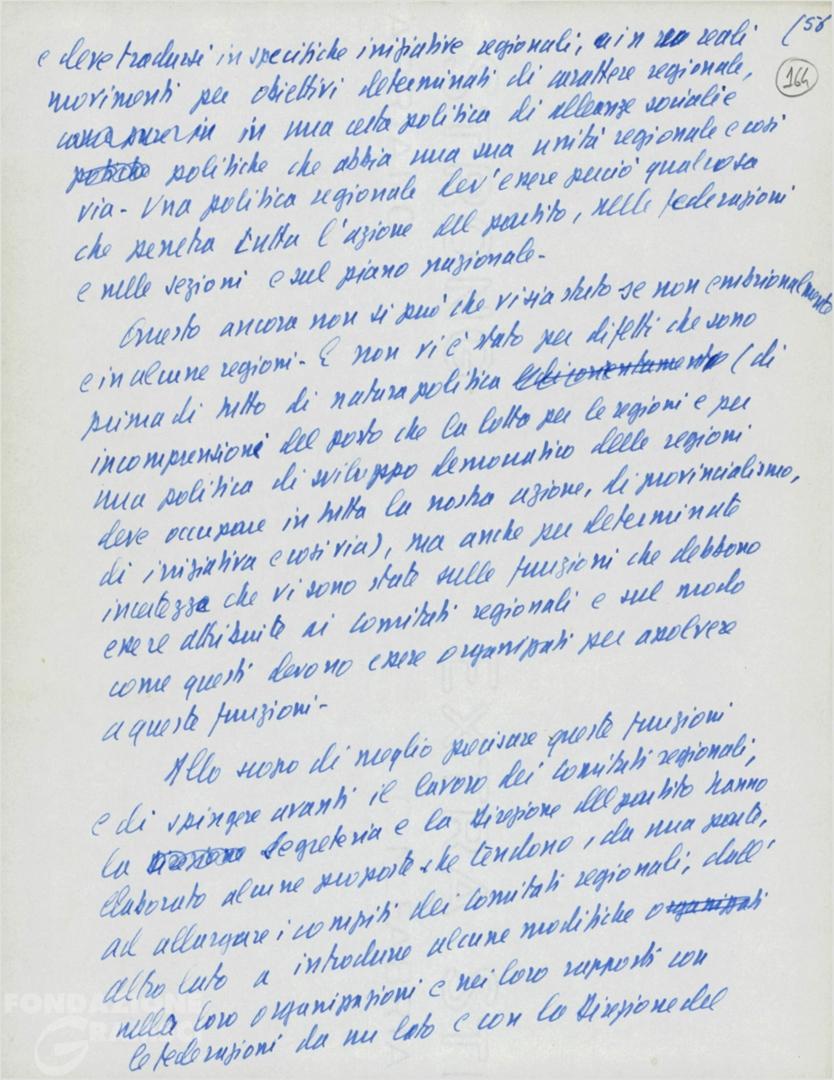 (58
164
e deve tradursi in specifiche iniziative regionali, in reali
movimenti per obiettivi determinati di carattere regionale,
in una certa politica di alleanze sociali e
politiche che abbia una sua unità regionale e così
via - Una politica regionale dev'essere perciò qualcosa
che penetra tutta l'azione del partito, nelle federazioni
e nelle sezioni e sul piano nazionale -
Questo ancora non si può che vi sia stato se non embrionalmente
e in alcune regioni - E non vi è stato per difetti che sono
prima di tutto di natura politica di orientamento (di
incomprensione del posto che la lotta per le regioni e per
una politica di sviluppo democratico delle regioni
deve occupare in tutta la nostra azione, di provincialismo,
di iniziativa e così via), ma anche per determinate
incertezze che vi sono state sulle funzioni che debbono
essere attribuite ai comitati regionali e sul modo
come questi devono essere organizzati per assolvere
a queste funzioni -
Allo scopo di meglio precisare queste funzioni
e di spingere avanti il lavoro dei Comitati regionali,
la Segreteria e la Direzione del partito hanno
elaborato alcune proposte che tendono, da una parte,
ad allargare i compiti dei Comitati regionali, dall'
altro lato a introdurre alcune modifiche organizzati
nella loro organizzazioni e nei loro rapporti con
le federazioni da un lato e con la Direzione del
FONDAZIONE
GRAMSCI